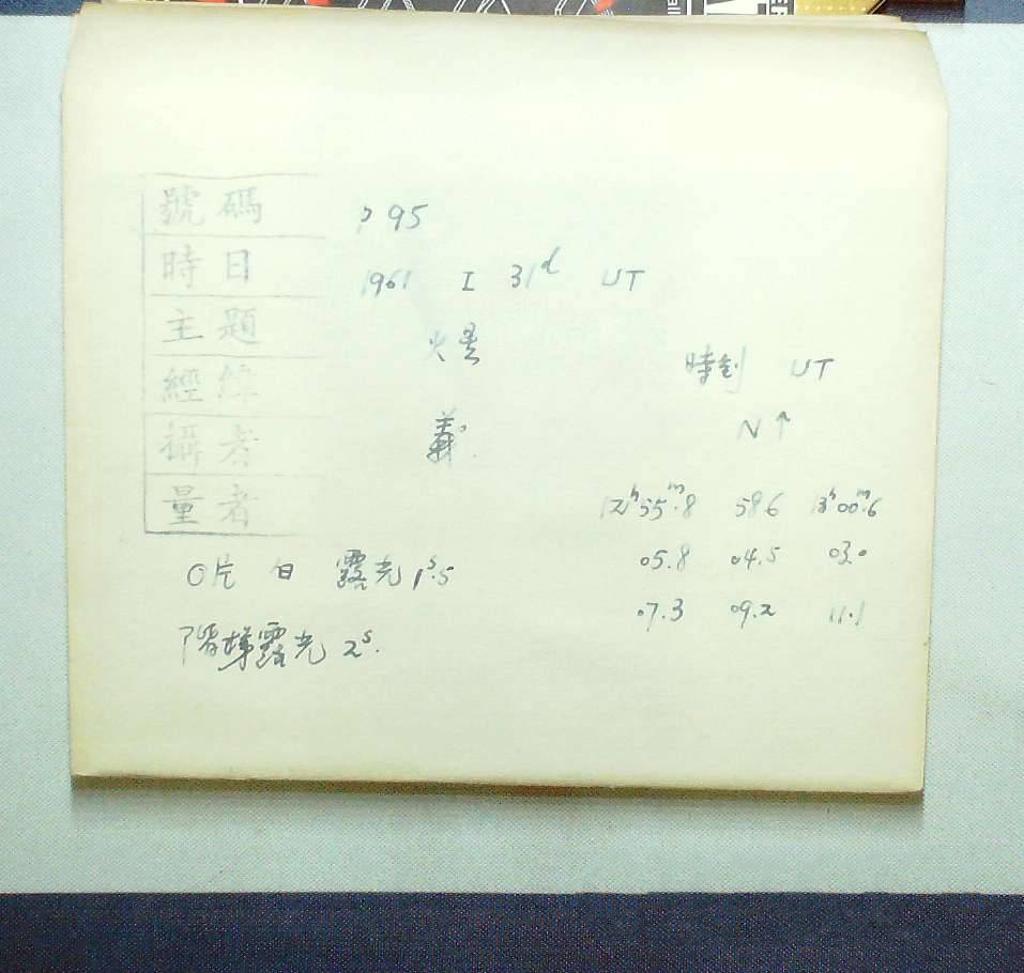 號碼 P 95
時日 1961 I 31ᵈ UT
主題 火星
經緯
時刻 UT
攝者 義
N↑
量者
12ʰ55ᵐ.8 58.6 13ʰ00ᵐ.6
05.8 04.5 03.0
07.3 09.2 11.1
O片 白 露光 1ˢ.5
階梯露光 2ˢ.